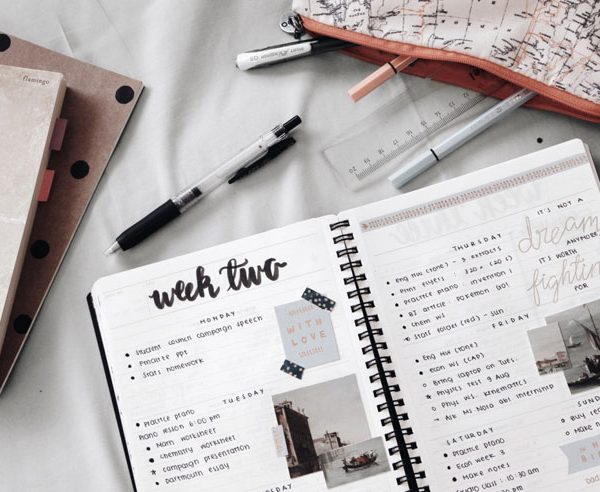 flamingo
week two
MONDAY
student council campaign speech
Penchite ppt
Stats homework
WITH
LOVE
TUESDAY
Practice piano
Piano lesson 6:00 pm
Math worksheet
Chemistry worksheet
campaign presentation
Dartmouth essay
THURSDAY
Eng HW (tone) - 3 extracts
Print flyers : 320 + 20 (2)
Practice piano : invention 1
BI article : Pokemon Go!
Chem WS
Stats folder (red) - sun
FRIDAY
Eng HW (tone)
Econ WS (CAD)
Bring laptop on Tues.
Physics test 9 Aug
Phys WS. kinematics
Ask Ms Nora abt internship
SATURDAY
Practice piano
Econ week 3
Make notes
class : 10:30 am
IT'S NOT A
dream
ANYMORE
IT'S WORTH
fighting
FOR
SUND
Buy
Make no